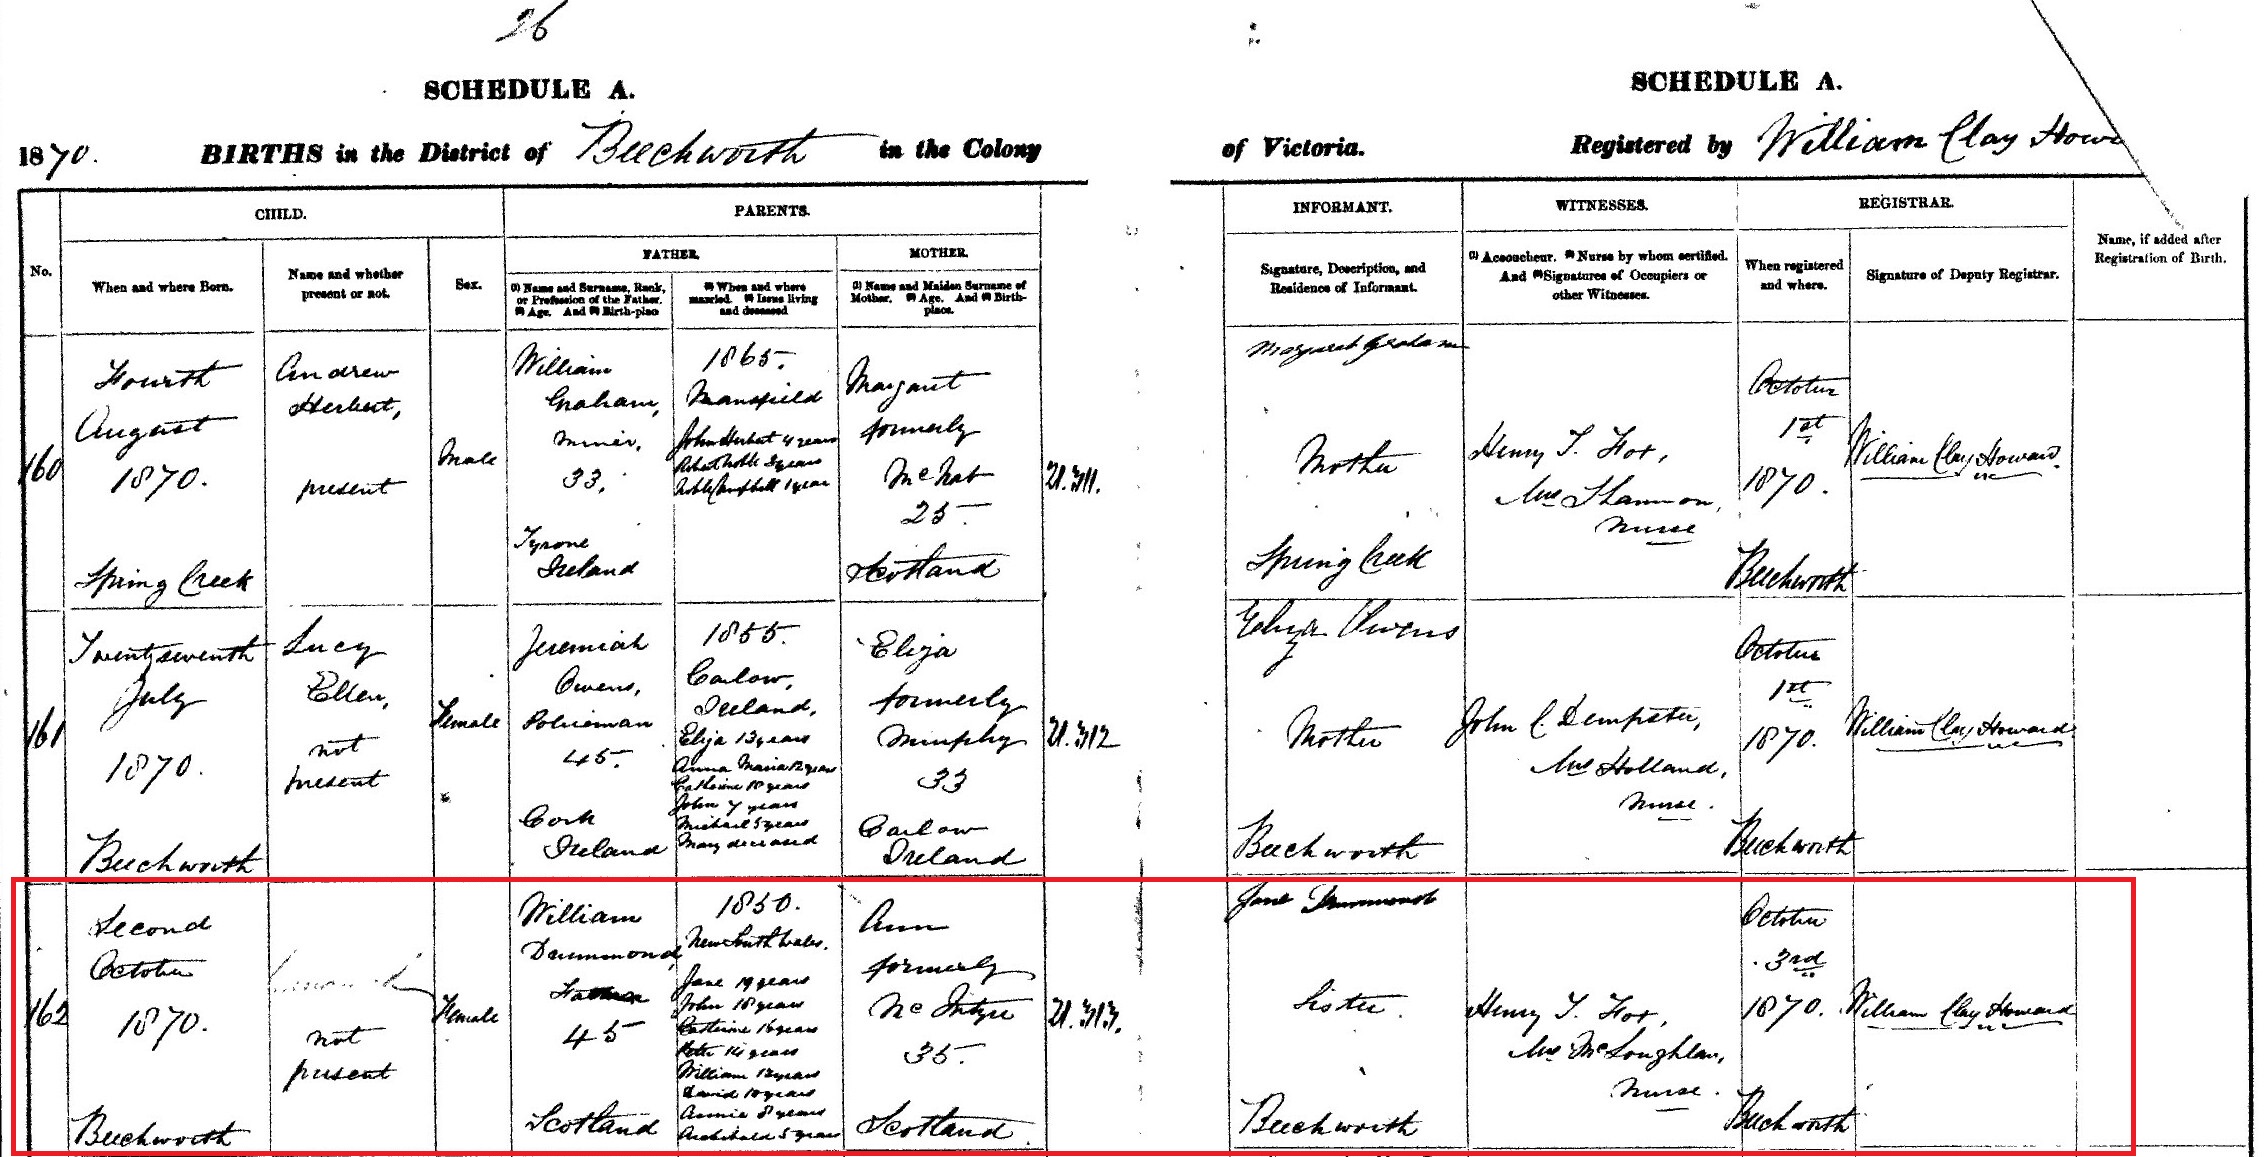 26
SCHEDULE A.
SCHEDULE A.
1870. BIRTHS in the District of Beechworth in the Colony
of Victoria. Registered by William Clay Howa
No.
CHILD.
When and where Born.
Name and whether
present or not.
Sex.
PARENTS.
FATHER.
(1) Name and Surname, Rank,
or Profession of the Father.
(2) Age. And (3) Birth-place
(1) When and where
married. (2) Issue living
and deceased
MOTHER.
(1) Name and Maiden Surname of
Mother. (2) Age. And (3) Birth-
place.
INFORMANT.
Signature, Description, and
Residence of Informant.
WITNESSES.
(1) Accoucheur. (2) Nurse by whom certified.
And (3) Signatures of Occupiers or
other Witnesses.
REGISTRAR.
When registered
and where.
Signature of Deputy Registrar.
Name, if added after
Registration of Birth.
160
Fourth
August
1870.
Spring Creek
Andrew
Herbert,
present
Male
William
Graham,
miner,
33,
Tyrone
Ireland
1865.
Mansfield
John Herbert 4 years
Robert Noble 3 years
Noble Campbell 1 year
Margaret
formerly
McNab
25
Scotland
21.311.
Margaret Graham
Mother
Spring Creek
Henry T. Fox,
Mrs Shannon,
nurse
October
1st
1870.
Beechworth
William Clay Howard.
161
Twenty seventh
July
1870.
Beechworth
Lucy
Ellen,
not
present
Female
Jeremiah
Owens,
Policeman
45.
Cork
Ireland
1855.
Carlow,
Ireland,
Eliza 13 years
Anna Maria 12 years
Catherine 10 years
John 7 years
Michael 5 years
Mary deceased
Eliza
formerly
Murphy
33
Carlow
Ireland
21.312
Eliza Owens
Mother
Beechworth
John C. Dempster,
Mrs Holland,
nurse.
October
1st
1870.
Beechworth
William Clay Howard
162
Second
October
1870.
Beechworth
not
present
Female
William
Drummond,
45
Scotland
1850.
New South Wales.
Jane 19 years
John 18 years
Catherine 16 years
Peter 14 years
William 12 years
David 10 years
Annie 8 years
Archibald 5 years
Ann
formerly
McIntyre
35.
Scotland
21.313.
Jane Drummond
Sister.
Beechworth
Henry T. Fox,
Mrs McLoughlan,
nurse.
October
3rd
1870.
Beechworth
William Clay Howard